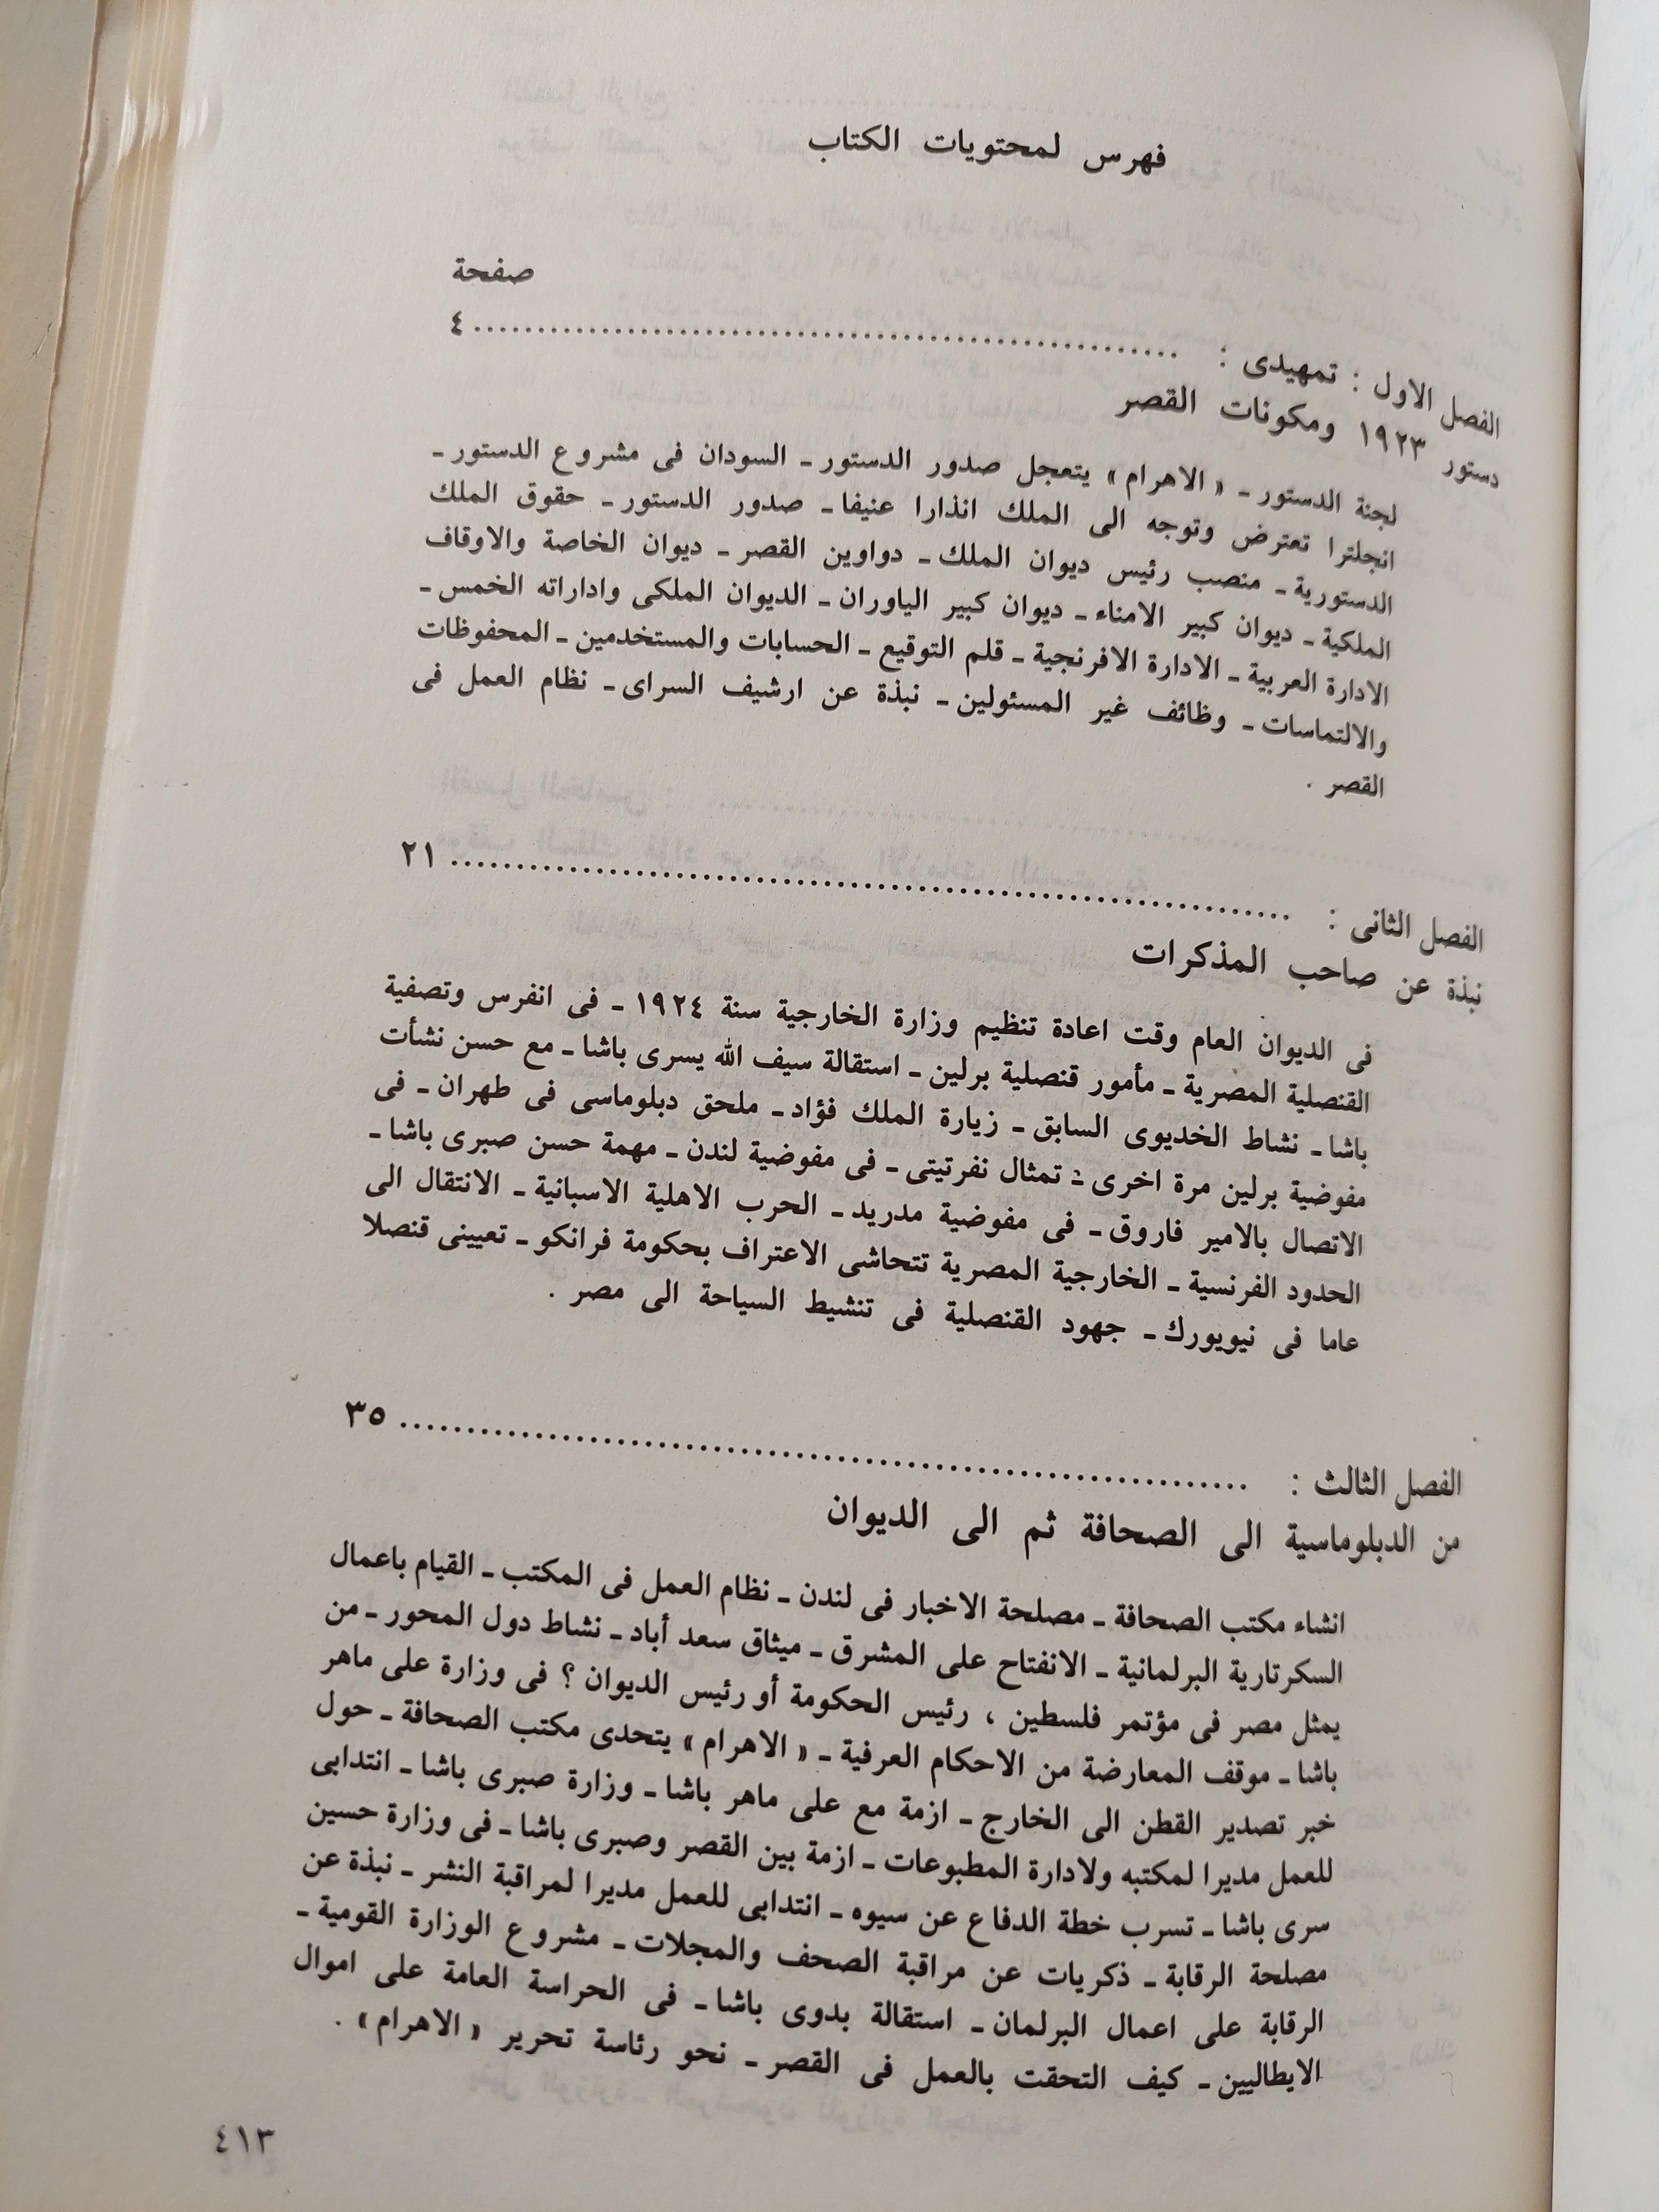 فهرس لمحتويات الكتاب
صفحة
الفصل الاول : تمهيدى : .......................................................... ٤
دستور ١٩٢٣ ومكونات القصر
لجنة الدستور ـ « الاهرام » يتعجل صدور الدستور ـ السودان فى مشروع الدستور ـ
انجلترا تعترض وتوجه الى الملك انذارا عنيفا ـ صدور الدستور ـ حقوق الملك
الدستورية ـ منصب رئيس ديوان الملك ـ دواوين القصر ـ ديوان الخاصة والاوقاف
الملكية ـ ديوان كبير الامناء ـ ديوان كبير الياوران ـ الديوان الملكى واداراته الخمس ـ
الادارة العربية ـ الادارة الافرنجية ـ قلم التوقيع ـ الحسابات والمستخدمين ـ المحفوظات
والالتماسات ـ وظائف غير المسئولين ـ نبذة عن ارشيف السراى ـ نظام العمل فى
القصر .
الفصل الثانى : .................................................................. ٢١
نبذة عن صاحب المذكرات
فى الديوان العام وقت اعادة تنظيم وزارة الخارجية سنة ١٩٢٤ ـ فى انفرس وتصفية
القنصلية المصرية ـ مأمور قنصلية برلين ـ استقالة سيف الله يسرى باشا ـ مع حسن نشأت
باشا ـ نشاط الخديوى السابق ـ زيارة الملك فؤاد ـ ملحق دبلوماسى فى طهران ـ فى
مفوضية برلين مرة اخرى ـ تمثال نفرتيتى ـ فى مفوضية لندن ـ مهمة حسن صبرى باشا ـ
الاتصال بالامير فاروق ـ فى مفوضية مدريد ـ الحرب الاهلية الاسبانية ـ الانتقال الى
الحدود الفرنسية ـ الخارجية المصرية تتحاشى الاعتراف بحكومة فرانكو ـ تعيينى قنصلا
عاما فى نيويورك ـ جهود القنصلية فى تنشيط السياحة الى مصر .
الفصل الثالث : .................................................................. ٣٥
من الدبلوماسية الى الصحافة ثم الى الديوان
انشاء مكتب الصحافة ـ مصلحة الاخبار فى لندن ـ نظام العمل فى المكتب ـ القيام باعمال
السكرتارية البرلمانية ـ الانفتاح على المشرق ـ ميثاق سعد أباد ـ نشاط دول المحور ـ من
يمثل مصر فى مؤتمر فلسطين ، رئيس الحكومة أو رئيس الديوان ؟ فى وزارة على ماهر
باشا ـ موقف المعارضة من الاحكام العرفية ـ « الاهرام » يتحدى مكتب الصحافة ـ حول
خبر تصدير القطن الى الخارج ـ ازمة مع على ماهر باشا ـ وزارة صبرى باشا ـ انتدابى
للعمل مديرا لمكتبه ولادارة المطبوعات ـ ازمة بين القصر وصبرى باشا ـ فى وزارة حسين
سرى باشا ـ تسرب خطة الدفاع عن سيوه ـ انتدابى للعمل مديرا لمراقبة النشر ـ نبذة عن
مصلحة الرقابة ـ ذكريات عن مراقبة الصحف والمجلات ـ مشروع الوزارة القومية ـ
الرقابة على اعمال البرلمان ـ استقالة بدوى باشا ـ فى الحراسة العامة على اموال
الايطاليين ـ كيف التحقت بالعمل فى القصر ـ نحو رئاسة تحرير « الاهرام » .
٤١٣